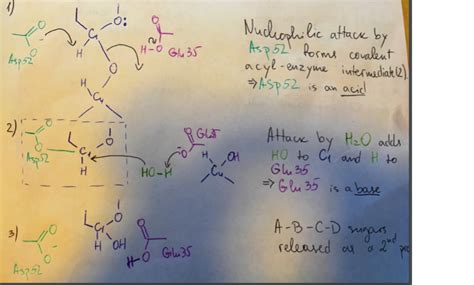 1)
O O: O
Asp52 C₁ H-O Glu35
H O
H
C₄
Nucleophilic attack by
Asp52 forms covalent
acyl-enzyme intermediate(2).
⇒ Asp52 is an acid
2)
O O Glu35
Asp52 C₁ O H OH
H HO-H C₄
Attack by H₂O adds
HO to C₁ and H to
Glu35
⇒ Glu35 is a base
3)
O O O
Asp52 C₁ H-O Glu35
H OH
A-B-C-D sugars
released as a 2nd